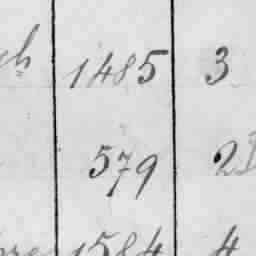 ch 1485 3
579 2
1584 4